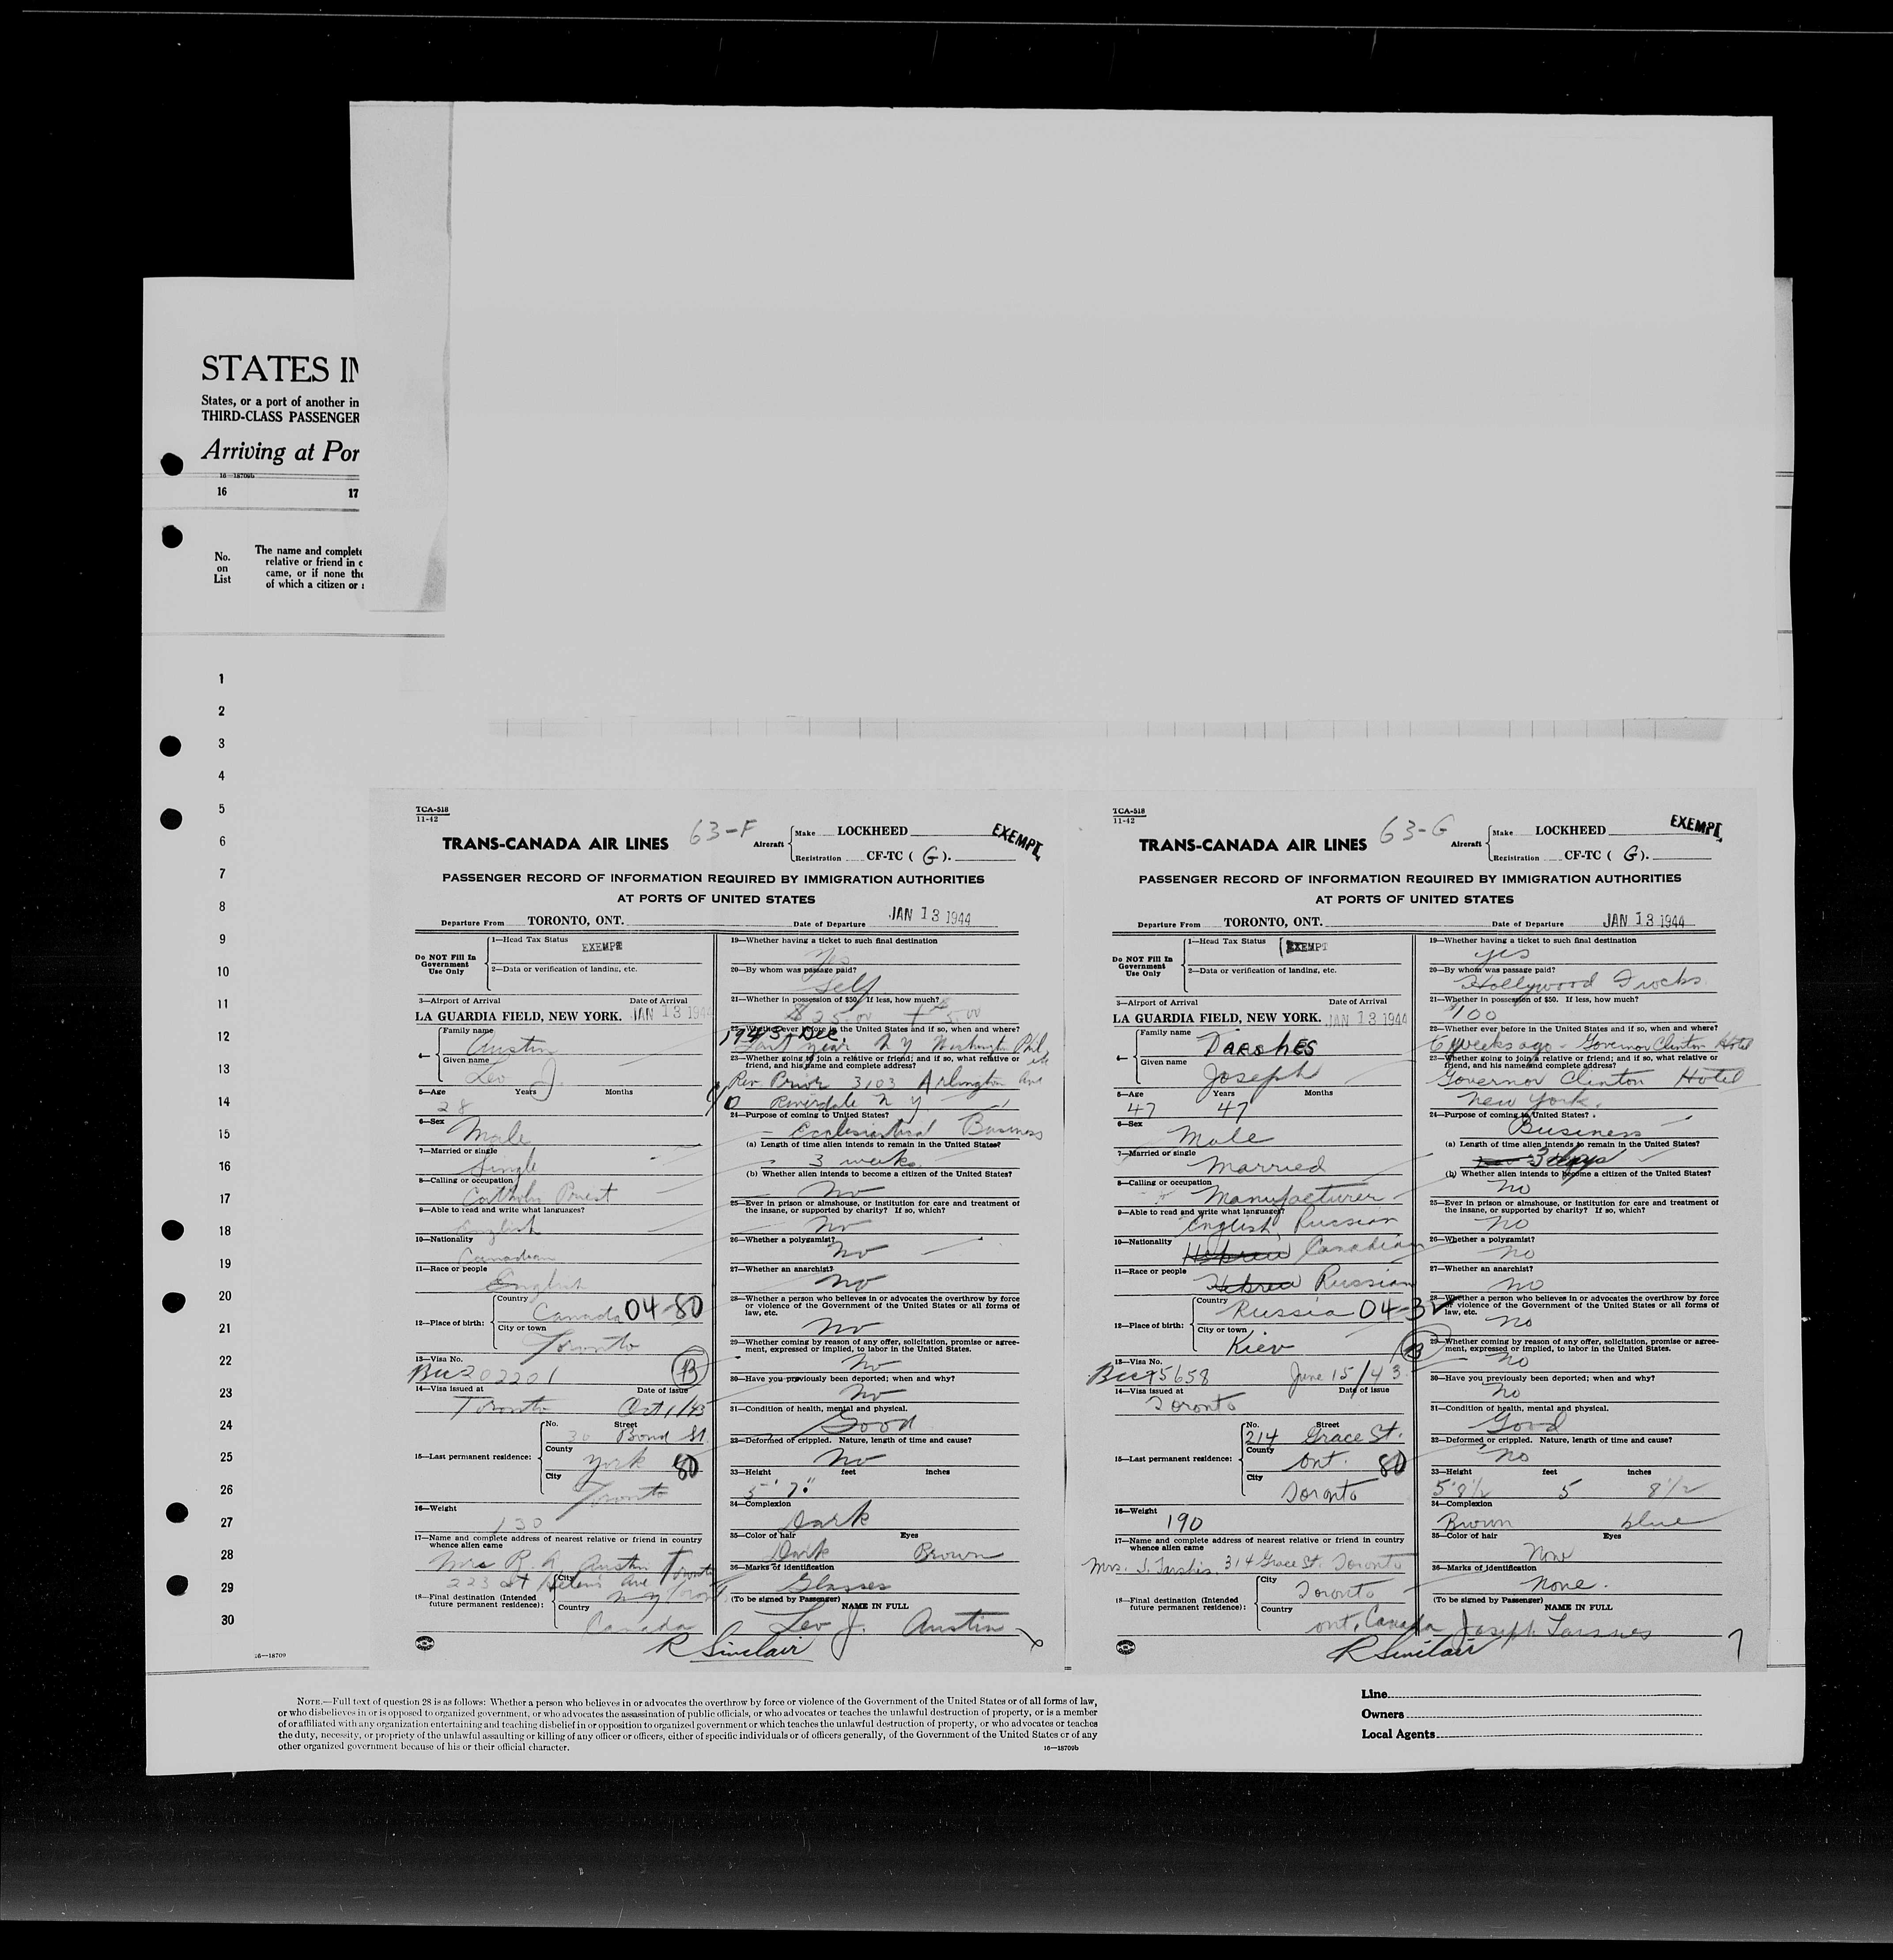 STATES IN
States, or a port of another in
THIRD-CLASS PASSENGER
Arriving at Por
16—18709b
16 17
No. on List
The name and complete
relative or friend in c
came, or if none the
of which a citizen or
1
2
3
4
5
6
7
8
9
10
11
12
13
14
15
16
17
18
19
20
21
22
23
24
25
26
27
28
29
30
16—18709
TCA-518
11-42
TRANS-CANADA AIR LINES
63-F
Aircraft
Make LOCKHEED
Registration CF-TC ( G ).
EXEMPT
PASSENGER RECORD OF INFORMATION REQUIRED BY IMMIGRATION AUTHORITIES
AT PORTS OF UNITED STATES
Departure From TORONTO, ONT. Date of Departure JAN 13 1944
Do NOT Fill In
Government
Use Only
1—Head Tax Status EXEMPT
2—Data or verification of landing, etc.
3—Airport of Arrival Date of Arrival
LA GUARDIA FIELD, NEW YORK. JAN 13 1944
4— Family name Austin
Given name Leo J.
5—Age Years Months
28
6—Sex
Male
7—Married or single
Single
8—Calling or occupation
Catholic Priest
9—Able to read and write what languages?
English
10—Nationality
Canadian
11—Race or people
English
12—Place of birth:
Country
Canada 04-80
City or town
Toronto
13—Visa No.
202201 B
14—Visa issued at Date of issue
Toronto Oct 1/43
15—Last permanent residence:
No. Street
30 Bond St.
County
York 80
City
Toronto
16—Weight
130
17—Name and complete address of nearest relative or friend in country
whence alien came
Mrs R. Austin Toronto
223 St Helens Ave
18—Final destination (Intended
future permanent residence):
City
Country
Canada
19—Whether having a ticket to such final destination
Yes
20—By whom was passage paid?
Self
21—Whether in possession of $50. If less, how much?
$25.00
22—Whether ever before in the United States and if so, when and where?
1943 Dec.
Last year N Y Washington Phil
23—Whether going to join a relative or friend; and if so, what relative or
friend, and his name and complete address?
Rev. Prior 3103 Arlington Ave
Riverdale N Y
24—Purpose of coming to United States?
Ecclesiastical Business
(a) Length of time alien intends to remain in the United States?
3 weeks
(b) Whether alien intends to become a citizen of the United States?
No
25—Ever in prison or almshouse, or institution for care and treatment of
the insane, or supported by charity? If so, which?
No
26—Whether a polygamist?
No
27—Whether an anarchist?
No
28—Whether a person who believes in or advocates the overthrow by force
or violence of the Government of the United States or all forms of
law, etc.
No
29—Whether coming by reason of any offer, solicitation, promise or agree-
ment, expressed or implied, to labor in the United States.
No
30—Have you previously been deported; when and why?
No
31—Condition of health, mental and physical.
Good
32—Deformed or crippled. Nature, length of time and cause?
No
33—Height feet inches
5' 7"
34—Complexion
Dark
35—Color of hair Eyes
Dark Brown
36—Marks of identification
Glasses
(To be signed by Passenger)
NAME IN FULL
Leo J. Austin
R Sinclair
TCA-518
11-42
TRANS-CANADA AIR LINES
63-G
Aircraft
Make LOCKHEED
Registration CF-TC ( G ).
EXEMPT
PASSENGER RECORD OF INFORMATION REQUIRED BY IMMIGRATION AUTHORITIES
AT PORTS OF UNITED STATES
Departure From TORONTO, ONT. Date of Departure JAN 13 1944
Do NOT Fill In
Government
Use Only
1—Head Tax Status EXEMPT
2—Data or verification of landing, etc.
3—Airport of Arrival Date of Arrival
LA GUARDIA FIELD, NEW YORK. JAN 13 1944
4— Family name TARSHES
Given name Joseph
5—Age Years Months
47 47
6—Sex
Male
7—Married or single
Married
8—Calling or occupation
Manufacturer
9—Able to read and write what languages?
English, Russian
10—Nationality
Hebrew Canadian
11—Race or people
Hebrew Russian
12—Place of birth:
Country
Russia 04-3
City or town
Kiev
13—Visa No. B
5658 June 15/43
14—Visa issued at Date of issue
Toronto
15—Last permanent residence:
No. Street
214 Grace St.
County
Ont. 80
City
Toronto
16—Weight
190
17—Name and complete address of nearest relative or friend in country
whence alien came
Mrs. J. Tarshis, 314 Grace St. Toronto
18—Final destination (Intended
future permanent residence):
City
Toronto
Country
Ont, Canada
19—Whether having a ticket to such final destination
yes
20—By whom was passage paid?
Hollywood Frocks
21—Whether in possession of $50. If less, how much?
$100
22—Whether ever before in the United States and if so, when and where?
6 weeks ago - Governor Clinton Hotel
23—Whether going to join a relative or friend; and if so, what relative or
friend, and his name and complete address?
Governor Clinton Hotel
New York.
24—Purpose of coming to United States?
Business
(a) Length of time alien intends to remain in the United States?
3 days
(b) Whether alien intends to become a citizen of the United States?
No
25—Ever in prison or almshouse, or institution for care and treatment of
the insane, or supported by charity? If so, which?
No
26—Whether a polygamist?
No
27—Whether an anarchist?
No
28—Whether a person who believes in or advocates the overthrow by force
or violence of the Government of the United States or all forms of
law, etc.
No
29—Whether coming by reason of any offer, solicitation, promise or agree-
ment, expressed or implied, to labor in the United States.
No
30—Have you previously been deported; when and why?
No
31—Condition of health, mental and physical.
Good
32—Deformed or crippled. Nature, length of time and cause?
No
33—Height feet inches
5'8½ 5 8½
34—Complexion
Brown blue
35—Color of hair Eyes
None
36—Marks of identification
None.
(To be signed by Passenger)
NAME IN FULL
Joseph Tarshes
R Sinclair 7
NOTE.—Full text of question 28 is as follows: Whether a person who believes in or advocates the overthrow by force or violence of the Government of the United States or of all forms of law,
or who disbelieves in or is opposed to organized government, or who advocates the assassination of public officials, or who advocates or teaches the unlawful destruction of property, or is a member
of or affiliated with any organization entertaining and teaching disbelief in or opposition to organized government or which teaches the unlawful destruction of property, or who advocates or teaches
the duty, necessity, or propriety of the unlawful assaulting or killing of any officer or officers, either of specific individuals or of officers generally, of the Government of the United States or of any
other organized government because of his or their official character.
16—18709b
Line
Owners
Local Agents